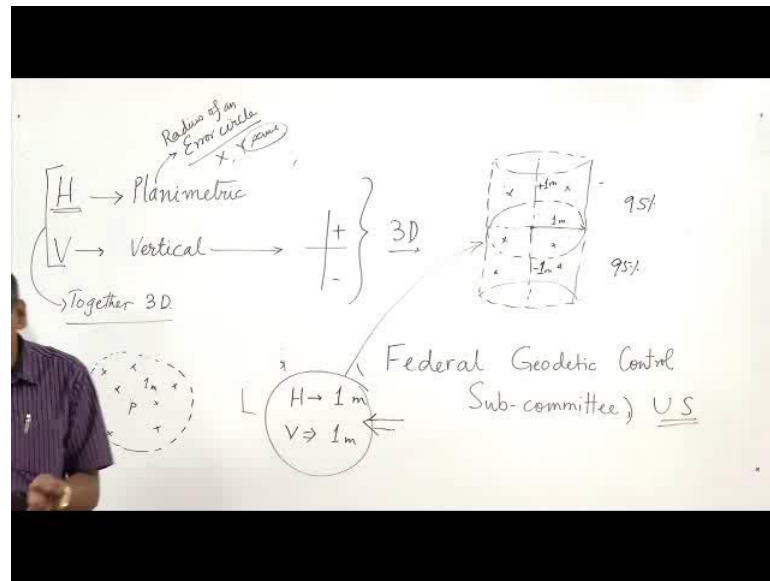 Radius of an
Error circle
X, Y plane
H → Planimetric
V → Vertical → + - } 3D
→ Together 3D
1m
P
H → 1 m
V ⇒ 1 m
+1m
1m
-1m
95%
95%
Federal Geodetic Control
Sub-committee, US